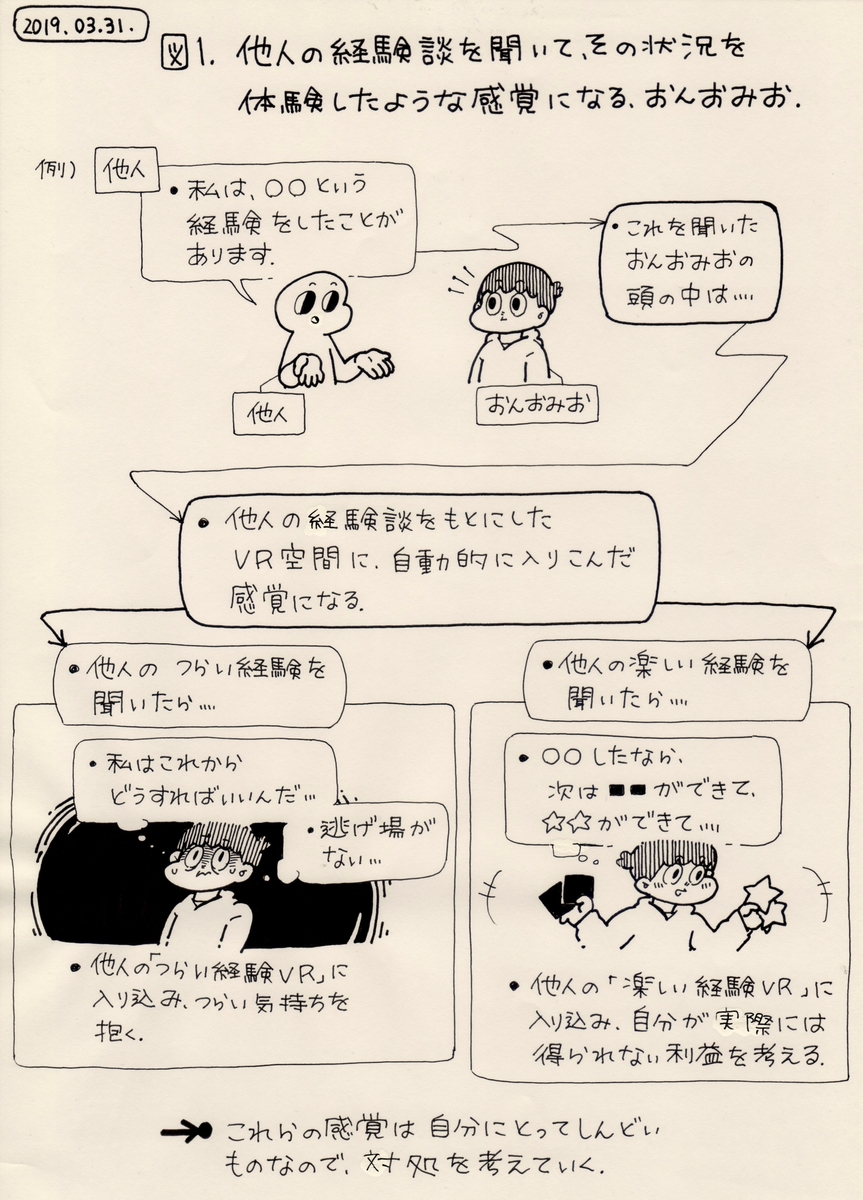 2019.03.31.
図1. 他人の経験談を聞いて、その状況を
体験したような感覚になる、おんおみお.
例)
他人
・私は、○○という
経験をしたことが
あります.
・これを聞いた
おんおみおの
頭の中は....
他人
おんおみお
・他人の経験談をもとにした
VR空間に、自動的に入りこんだ
感覚になる.
・他人の つらい経験を
聞いたら....
・私はこれから
どうすればいいんだ...
・逃げ場が
ない...
・他人の「つらい経験VR」に
入り込み、つらい気持ちを
抱く.
・他人の楽しい経験を
聞いたら....
・○○したなら、
次は■■ができて、
☆☆ができて....
・他人の「楽しい経験VR」に
入り込み、自分が実際には
得られない利益を考える.
→これらの感覚は自分にとってしんどい
ものなので、対処を考えていく.